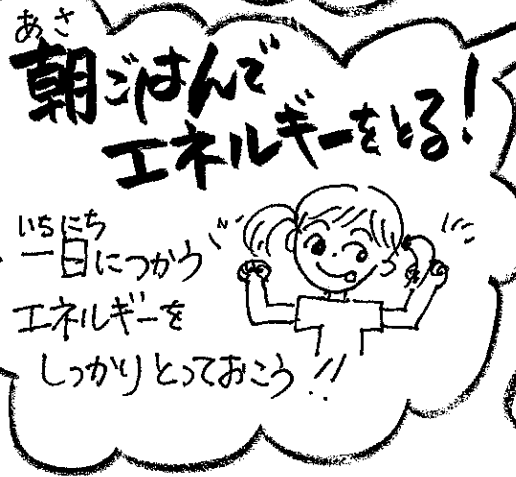 あさ
朝ごはんで
エネルギーをとる!
いちにち
一日につかう
エネルギーを
しっかりとっておこう!!